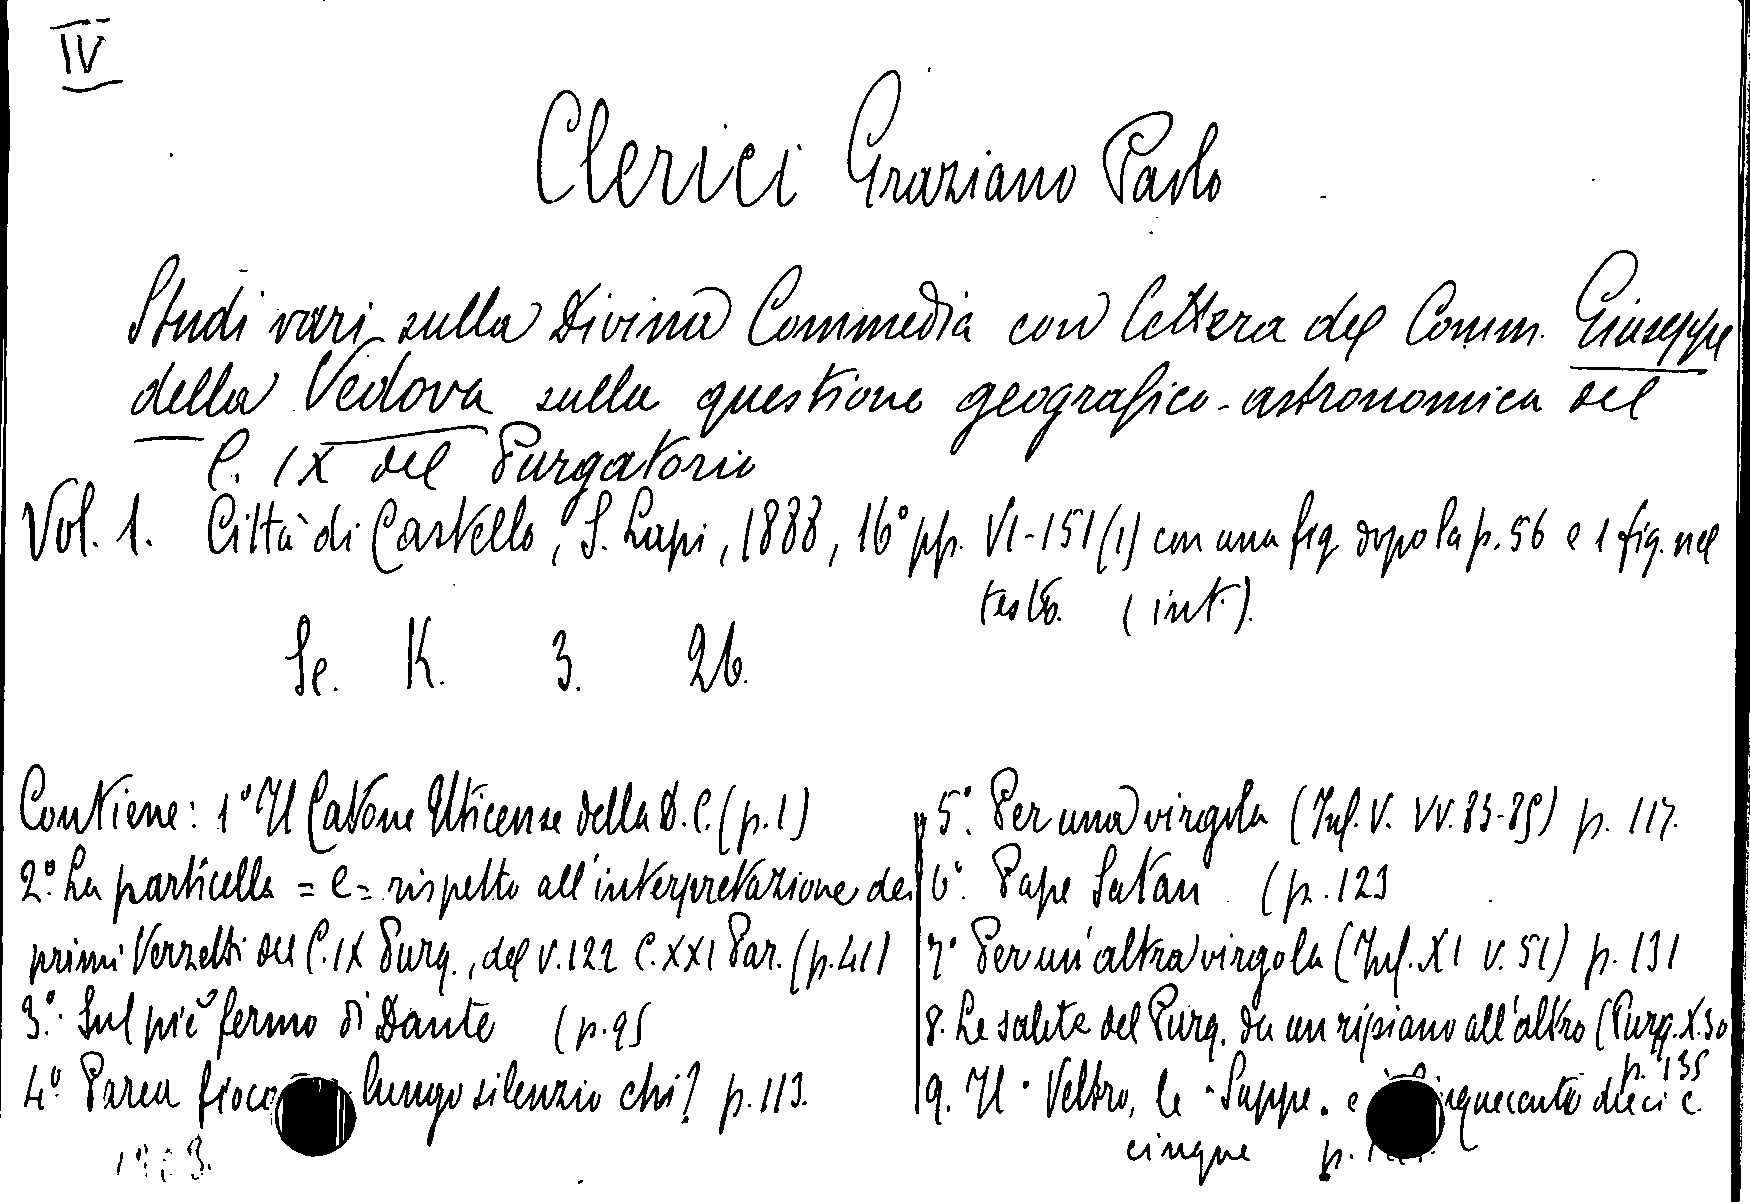 IV
Clerici Graziano Paolo
Studi vari sulla Divina Commedia con lettera del Comm. Giuseppe
della Vedova sulla questione geografico-astronomica del
C. IX del Purgatorio
Vol. 1. Città di Castello, S. Lapi, 1888, 16° pp. VI-151 (1) con una fig. dopo la p. 56 e 1 fig. nel
testo. (int.).
Se. K. 3. 26.
Contiene: 1° Il Catone Uticense della D. C. (p. 1)
2°. La particella = e = rispetto all'interpretazione dei
primi Verzetti del C. IX Purg., del v. 122 C. XXI Par. (p. 41)
3°. Sul piè fermo di Dante (p. 95
4° Parea fioco lungo silenzio chi? p. 113.
5°. Per una virgola (Inf. V. vv. 83-85) p. 117.
6°. Pape Satan (p. 123
7° Per un'altra virgola (Inf. XI v. 51) p. 131
8. Le salite del Purg. da un ripiano all'altro (Purg. X. 30
p. 135
9. Il Veltro, le "Suppe" e dieci e
cinque p.